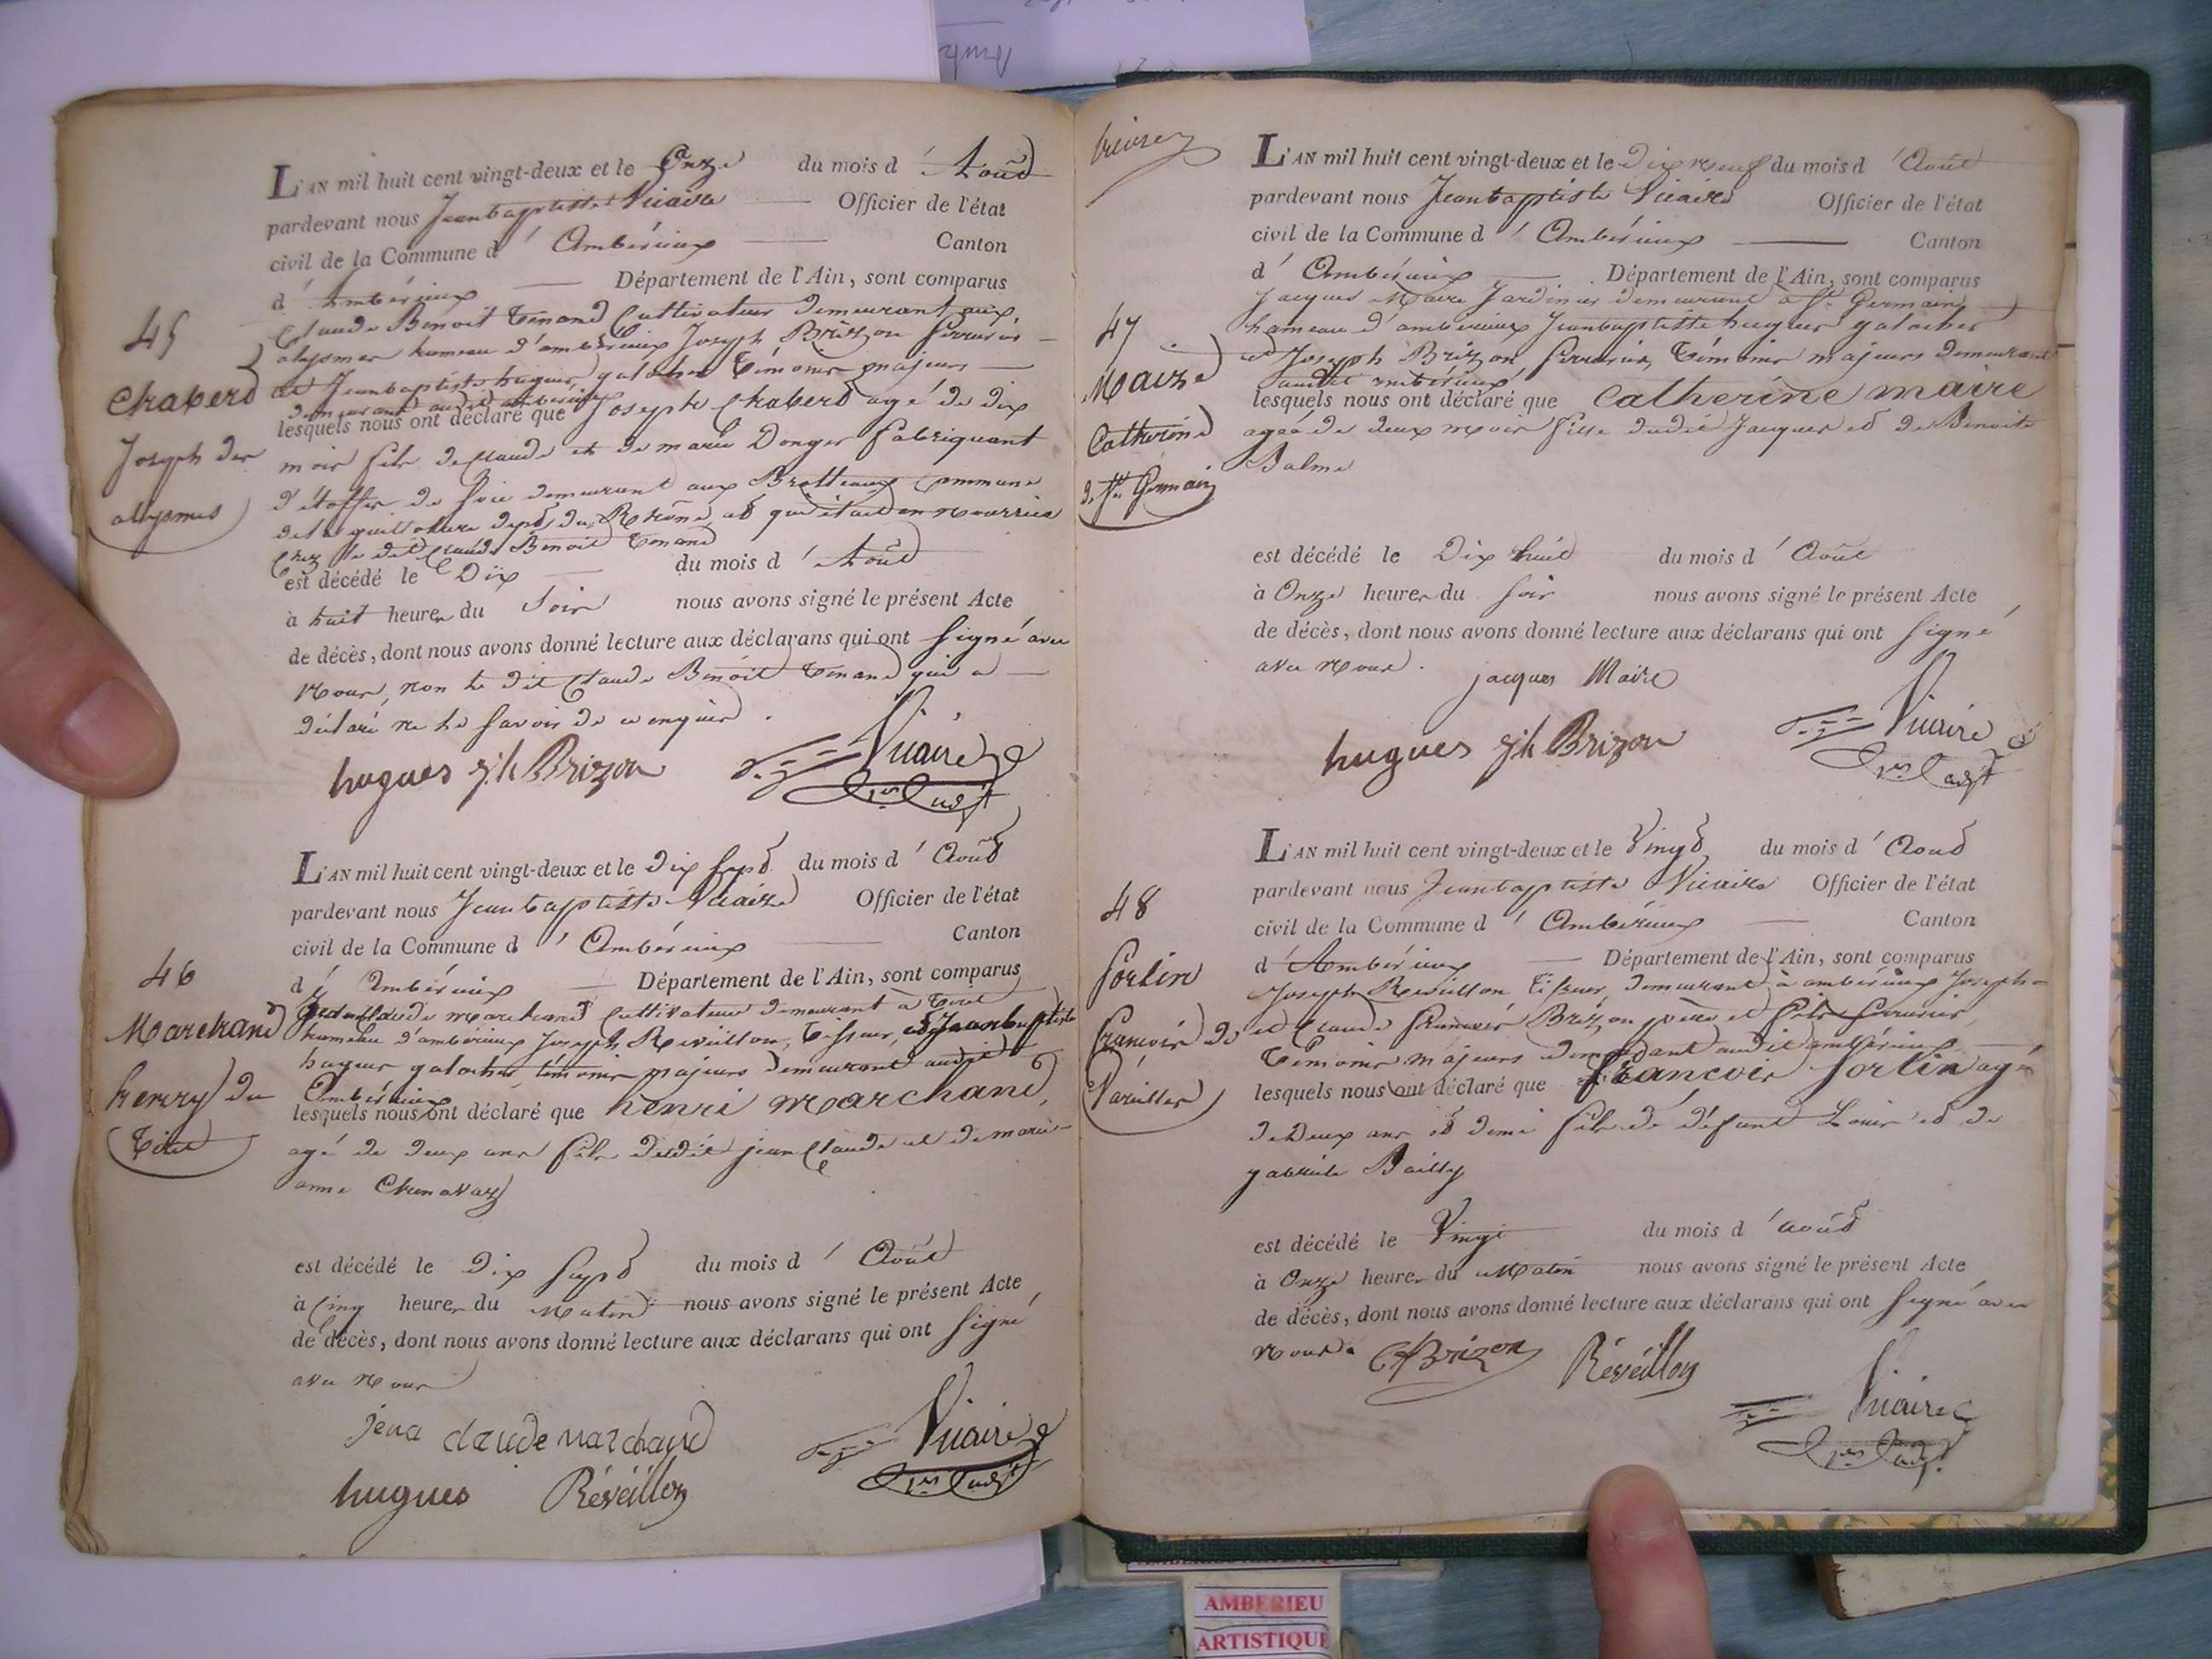 L'AN mil huit cent vingt-deux et le Onze du mois d' Août
pardevant nous Jeanbaptiste Vicaire Officier de l'état
civil de la Commune d' Ambérieux Canton
d' Ambérieux Département de l'Ain, sont comparus
Claude Benoit Tenand Cultivateur demeurant aux
alysmes hameau d'ambérieux Joseph Brizon Serrurier
et Jeanbaptiste hugues galocher témoins majeurs
demeurant audit ambérieux
lesquels nous ont déclaré que Joseph Chaberd agé de dix
mois fils de Claude et de marie Donger fabriquant
d'étoffes de soie demeurant aux Brotteaux Commune
de la guillotiere dept du Rhône, et qui était en nourrice
Chez le dit Claude Benoit Tenand
est décédé le Dix du mois d' Août
à huit heures du Soir nous avons signé le présent Acte
de décès, dont nous avons donné lecture aux déclarans qui ont signé avec
Nous, non le dit Claude Benoit Tenand qui a
déclaré ne le savoir de ce enquis.
hugues jh Brizon Vicaire
45
Chaberd
Joseph des
alysmes
L'AN mil huit cent vingt-deux et le dix sept du mois d' Août
pardevant nous Jeanbaptiste Vicaire Officier de l'état
civil de la Commune d' Ambérieux Canton
d' Ambérieux Département de l'Ain, sont comparus
Jean Claude Marchand Cultivateur demeurant à Tiret
hameau d'ambérieux Joseph Reveillon, tisseur, et Jeanbaptiste
hugues galocher, témoins majeurs demeurant audit
Ambérieux
lesquels nous ont déclaré que henri Marchand,
agé de deux ans fils dudit jean Claude et de marie
anne Chenavaz
est décédé le Dix Sept du mois d' Août
à Cinq heures du Matin nous avons signé le présent Acte
de décès, dont nous avons donné lecture aux déclarans qui ont signé
avec Nous
jena claude marchand
hugues Réveillon Vicaire
46
Marchand
henry du
Tiret
L'AN mil huit cent vingt-deux et le Dix Neuf du mois d' Août
pardevant nous Jeanbaptiste Vicaire Officier de l'état
civil de la Commune d' Ambérieux Canton
d' Ambérieux Département de l'Ain, sont comparus
Jacques Maire Jardinier demeurant à St Germain
hameau d'ambérieux Jeanbaptiste hugues galocher
et Joseph Brizon Serrurier, témoins majeurs demeurant
audit ambérieux
lesquels nous ont déclaré que Catherine maire
agée de deux mois fille dudit Jacques et de Benoite
Balme
est décédé le Dix huit du mois d' Août
à Onze heures du soir nous avons signé le présent Acte
de décès, dont nous avons donné lecture aux déclarans qui ont signé
avec Nous.
jacques Maire
hugues jh Brizon Vicaire
47
Maire
Catherine
de St Germain
L'AN mil huit cent vingt-deux et le Vingt du mois d' Août
pardevant nous Jeanbaptiste Vicaire Officier de l'état
civil de la Commune d' Ambérieux Canton
d' Ambérieux Département de l'Ain, sont comparus
Joseph Reveillon Tisseur, demeurant à ambérieux Joseph
et Claude françois Brizon père et fils serrurier,
témoins majeurs demeurant audit ambérieux
lesquels nous ont déclaré que françois Sorlin agé
de Deux ans et demi fils de défunt Louis et de
gabriele Bailly
est décédé le Vingt du mois d' août
à Onze heures du Matin nous avons signé le présent Acte
de décès, dont nous avons donné lecture aux déclarans qui ont signé avec
Nous.
CfBrizon Réveillon
Vicaire
48
Sorlin
françois de
AMBERIEU
ARTISTIQUE